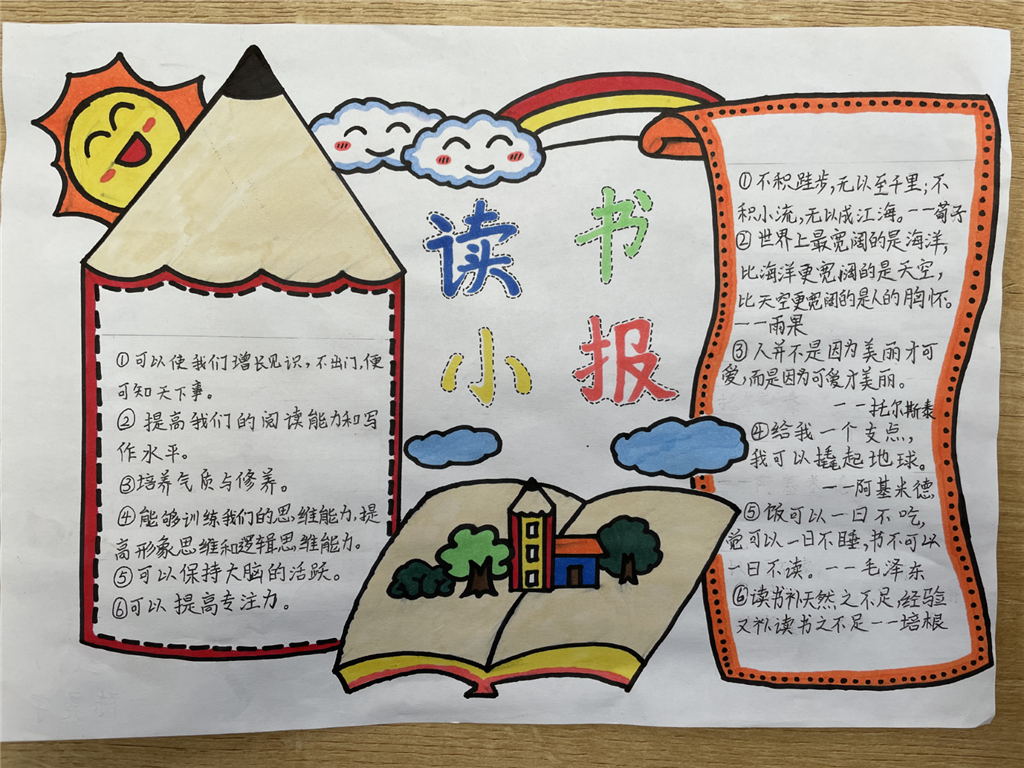 读书
小报
①可以使我们增长见识,不出门,便
可知天下事。
②提高我们的阅读能力和写
作水平。
③培养气质与修养。
④能够训练我们的思维能力,提
高形象思维和逻辑思维能力。
⑤可以保持大脑的活跃。
⑥可以提高专注力。
①不积跬步,无以至千里;不
积小流,无以成江海。——荀子
②世界上最宽阔的是海洋,
比海洋更宽阔的是天空,
比天空更宽阔的是人的胸怀。
——雨果
③人并不是因为美丽才可
爱,而是因为可爱才美丽。
——托尔斯泰
④给我一个支点,
我可以撬起地球。
——阿基米德
⑤饭可以一日不吃,
觉可以一日不睡,书不可以
一日不读。——毛泽东
⑥读书补天然之不足,经验
又补读书之不足——培根